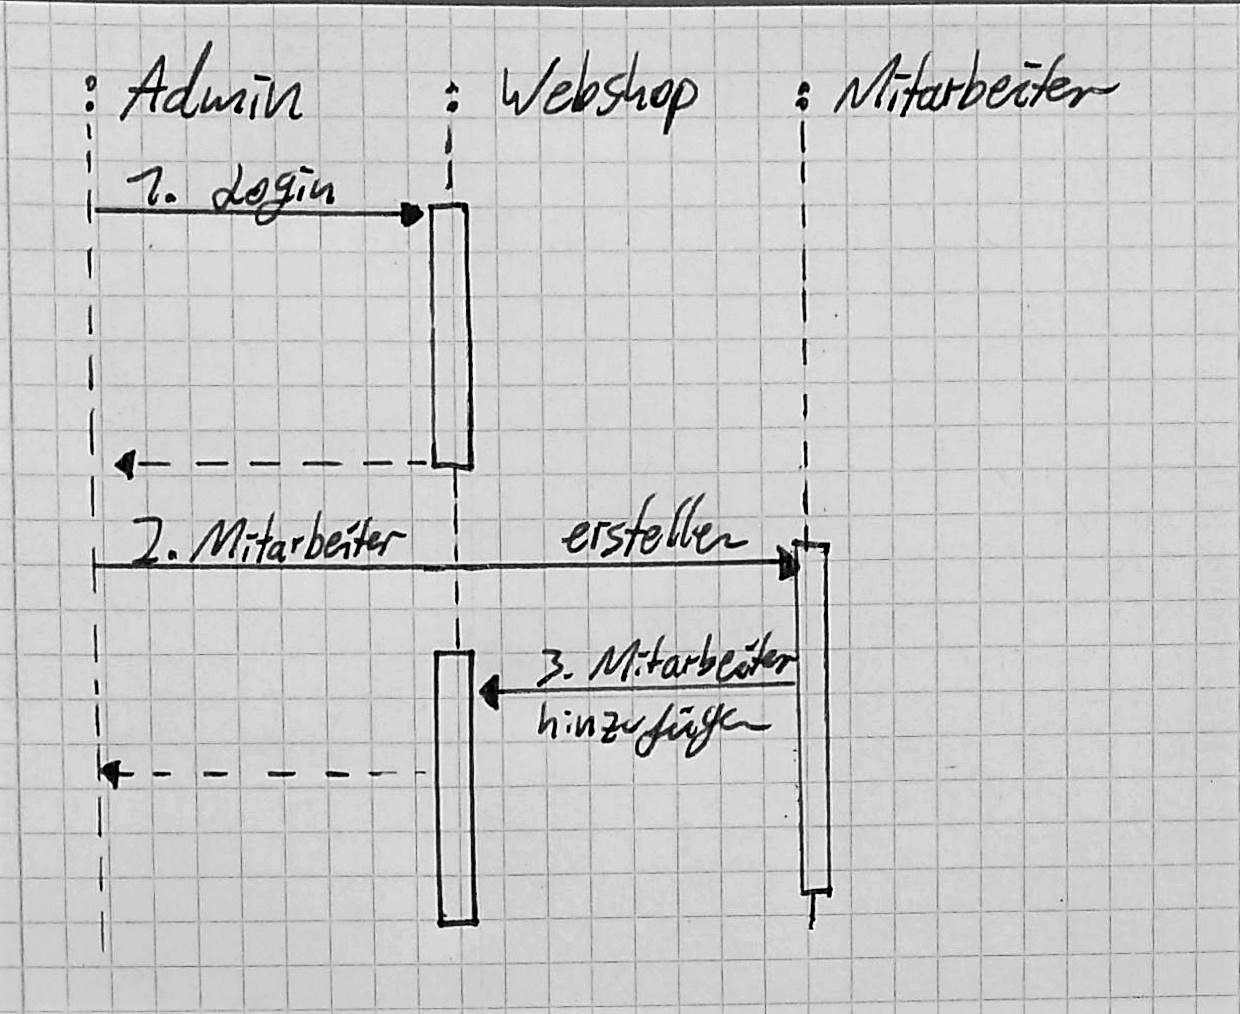 : Admin
: Webshop
: Mitarbeiter
1. Login
2. Mitarbeiter erstellen
3. Mitarbeiter
hinzufügen